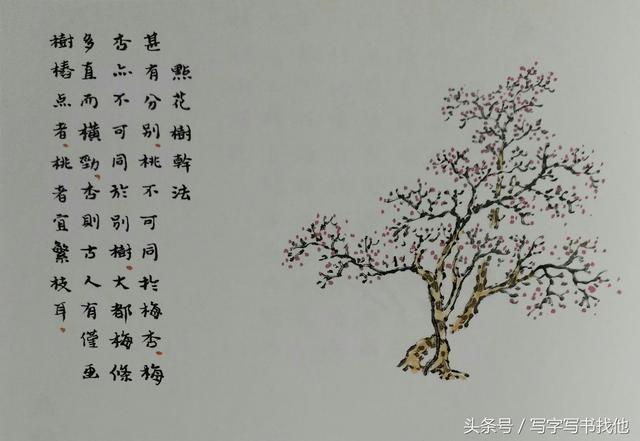 點花樹幹法
甚有分别桃不可同於梅杏梅
杏亦不可同於别樹大都梅條
多直而横勁杏則古人有僅画
樹樁点者桃者宜繁枝耳
头条号／写字写书找他